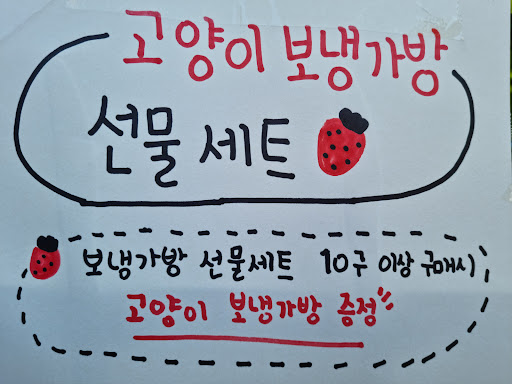 고양이 보냉가방
선물세트
보냉가방 선물세트 10구 이상 구매시
고양이 보냉가방 증정